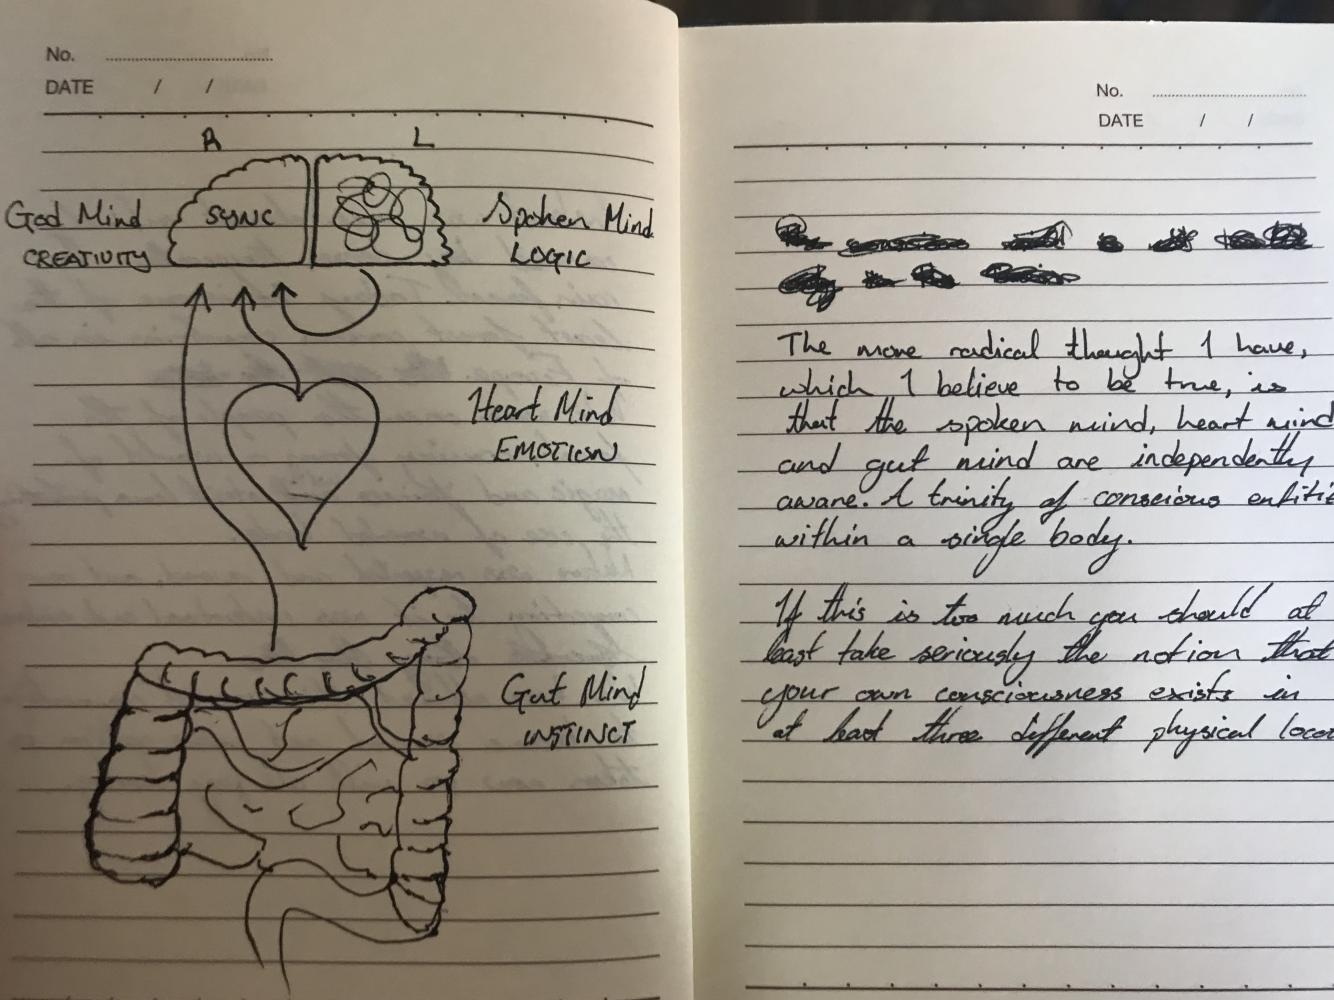 No.
DATE / /
R L
God Mind
CREATIVITY
SYNC
Spoken Mind
LOGIC
Heart Mind
EMOTION
Gut Mind
INSTINCT
No.
DATE / /
The more radical thought I have,
which I believe to be true, is
that the spoken mind, heart mind
and gut mind are independently
aware. A trinity of conscious entitie
within a single body.
If this is too much you should at
least take seriously the notion that
your own consciousness exists in
at least three different physical loca